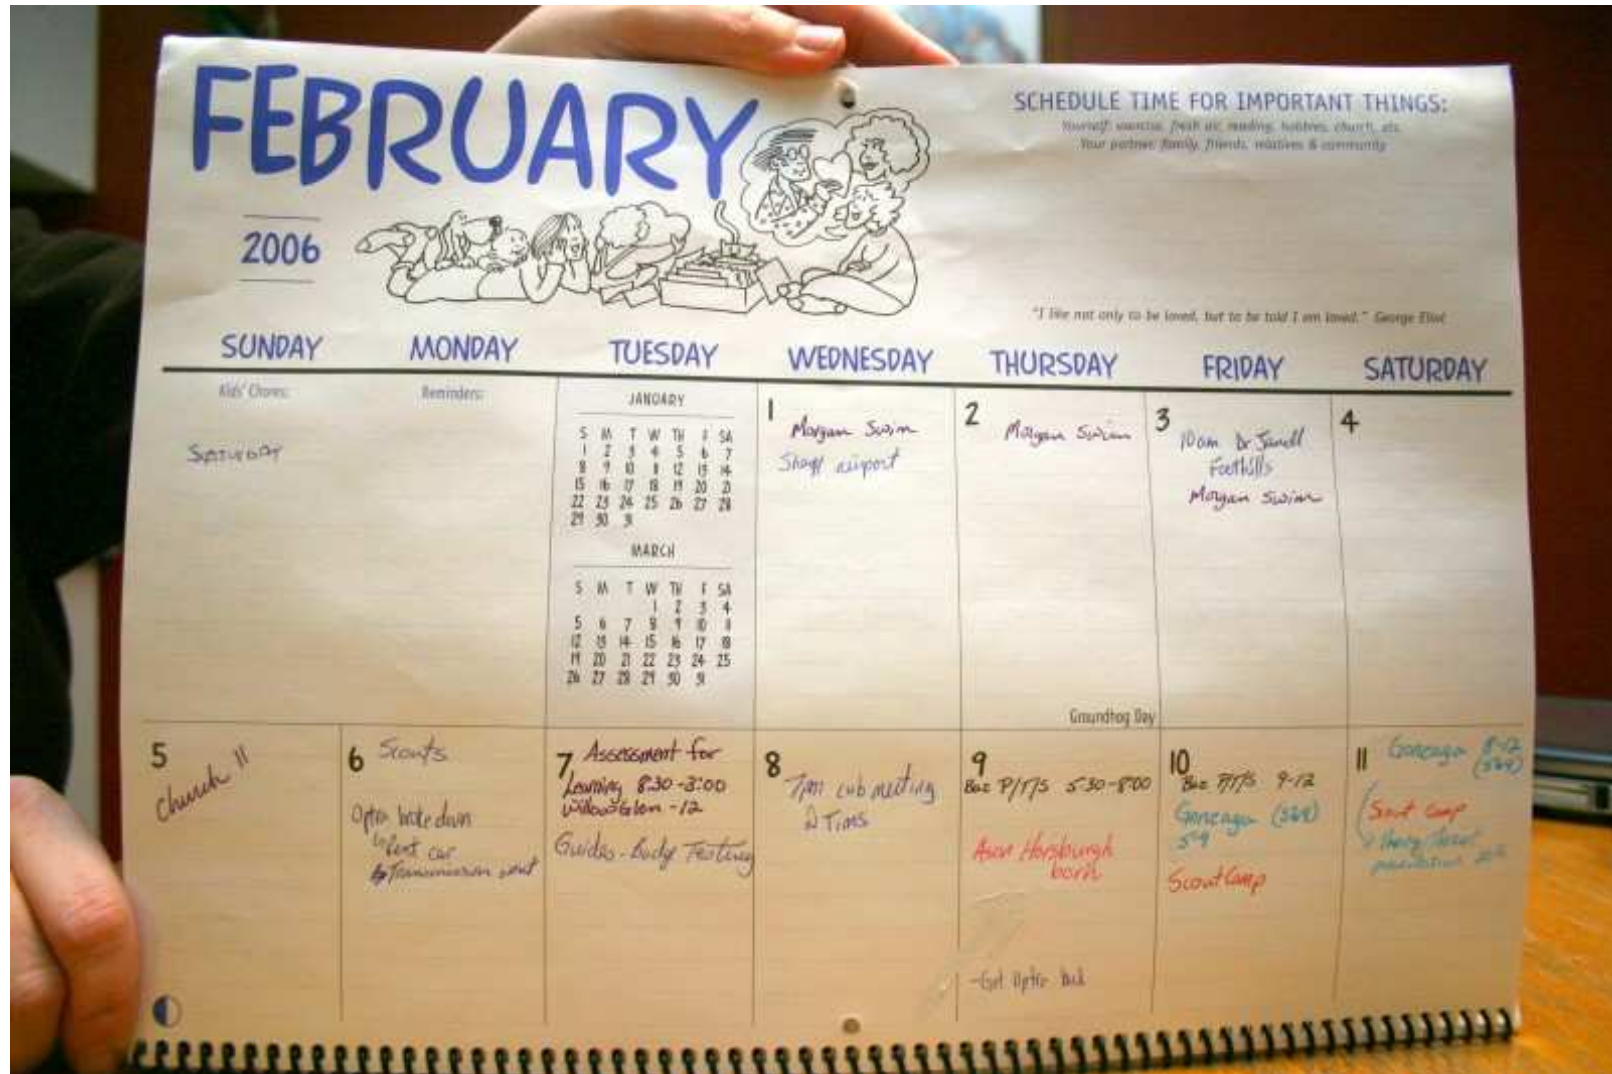 FEBRUARY
2006
SCHEDULE TIME FOR IMPORTANT THINGS:
Yourself: exercise, fresh air, reading, hobbies, church, etc.
Your partner, family, friends, relatives & community
"I like not only to be loved, but to be told I am loved." George Eliot
SUNDAY MONDAY TUESDAY WEDNESDAY THURSDAY FRIDAY SATURDAY
Kids' Chores:
SATURDAY
Reminders:
JANUARY
S M T W TH F SA
1 2 3 4 5 6 7
8 9 10 11 12 13 14
15 16 17 18 19 20 21
22 23 24 25 26 27 28
29 30 31
MARCH
S M T W TH F SA
1 2 3 4
5 6 7 8 9 10 11
12 13 14 15 16 17 18
19 20 21 22 23 24 25
26 27 28 29 30 31
1
Morgan Swim
airport
2
Morgan Swim
Groundhog Day
3
10am Dr
Foothills
Morgan Swim
4
5
Church 11
6
Scouts
Optra broke down
car
Transmission went
7
Assessment for
Learning 8:30-3:00
Willow Glen -12
Guides-Body Testing
8
7pm cub meeting
@ Tims
9
P/T/S 5:30-8:00
Horsburgh
born
-Get Optra back
10
P/T/S 9-12
Gonzaga
5-9
Scout Camp
11
Gonzaga 8-12
Scout Camp